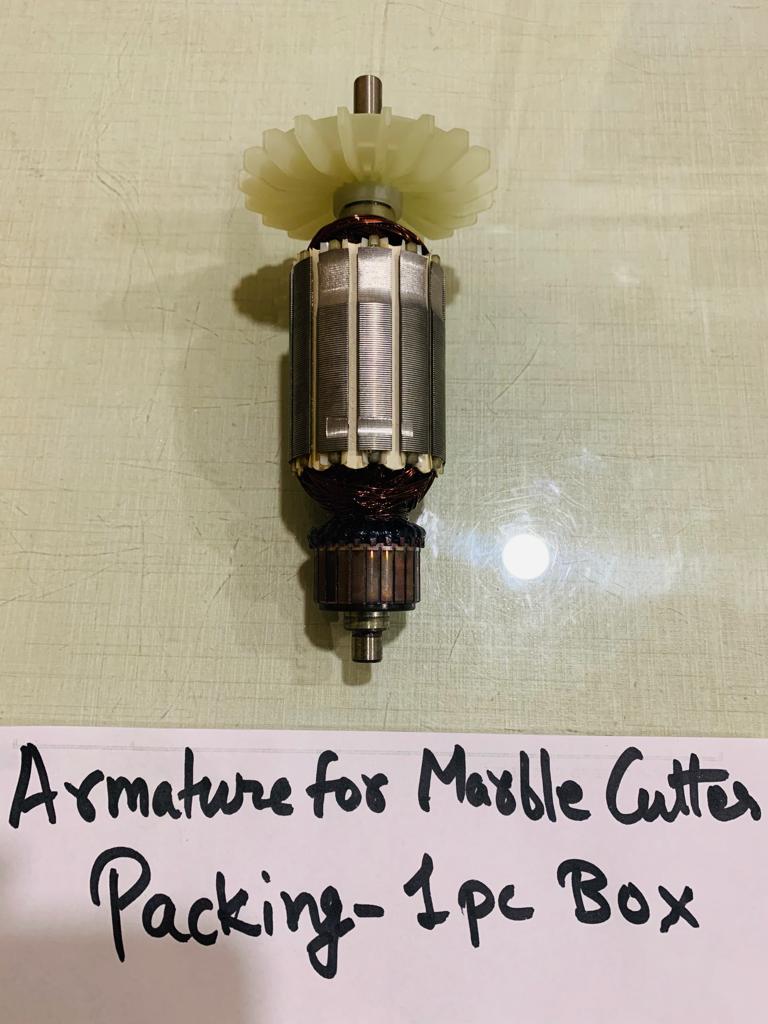 Armature for Marble Cutter
Packing- 1 pc Box